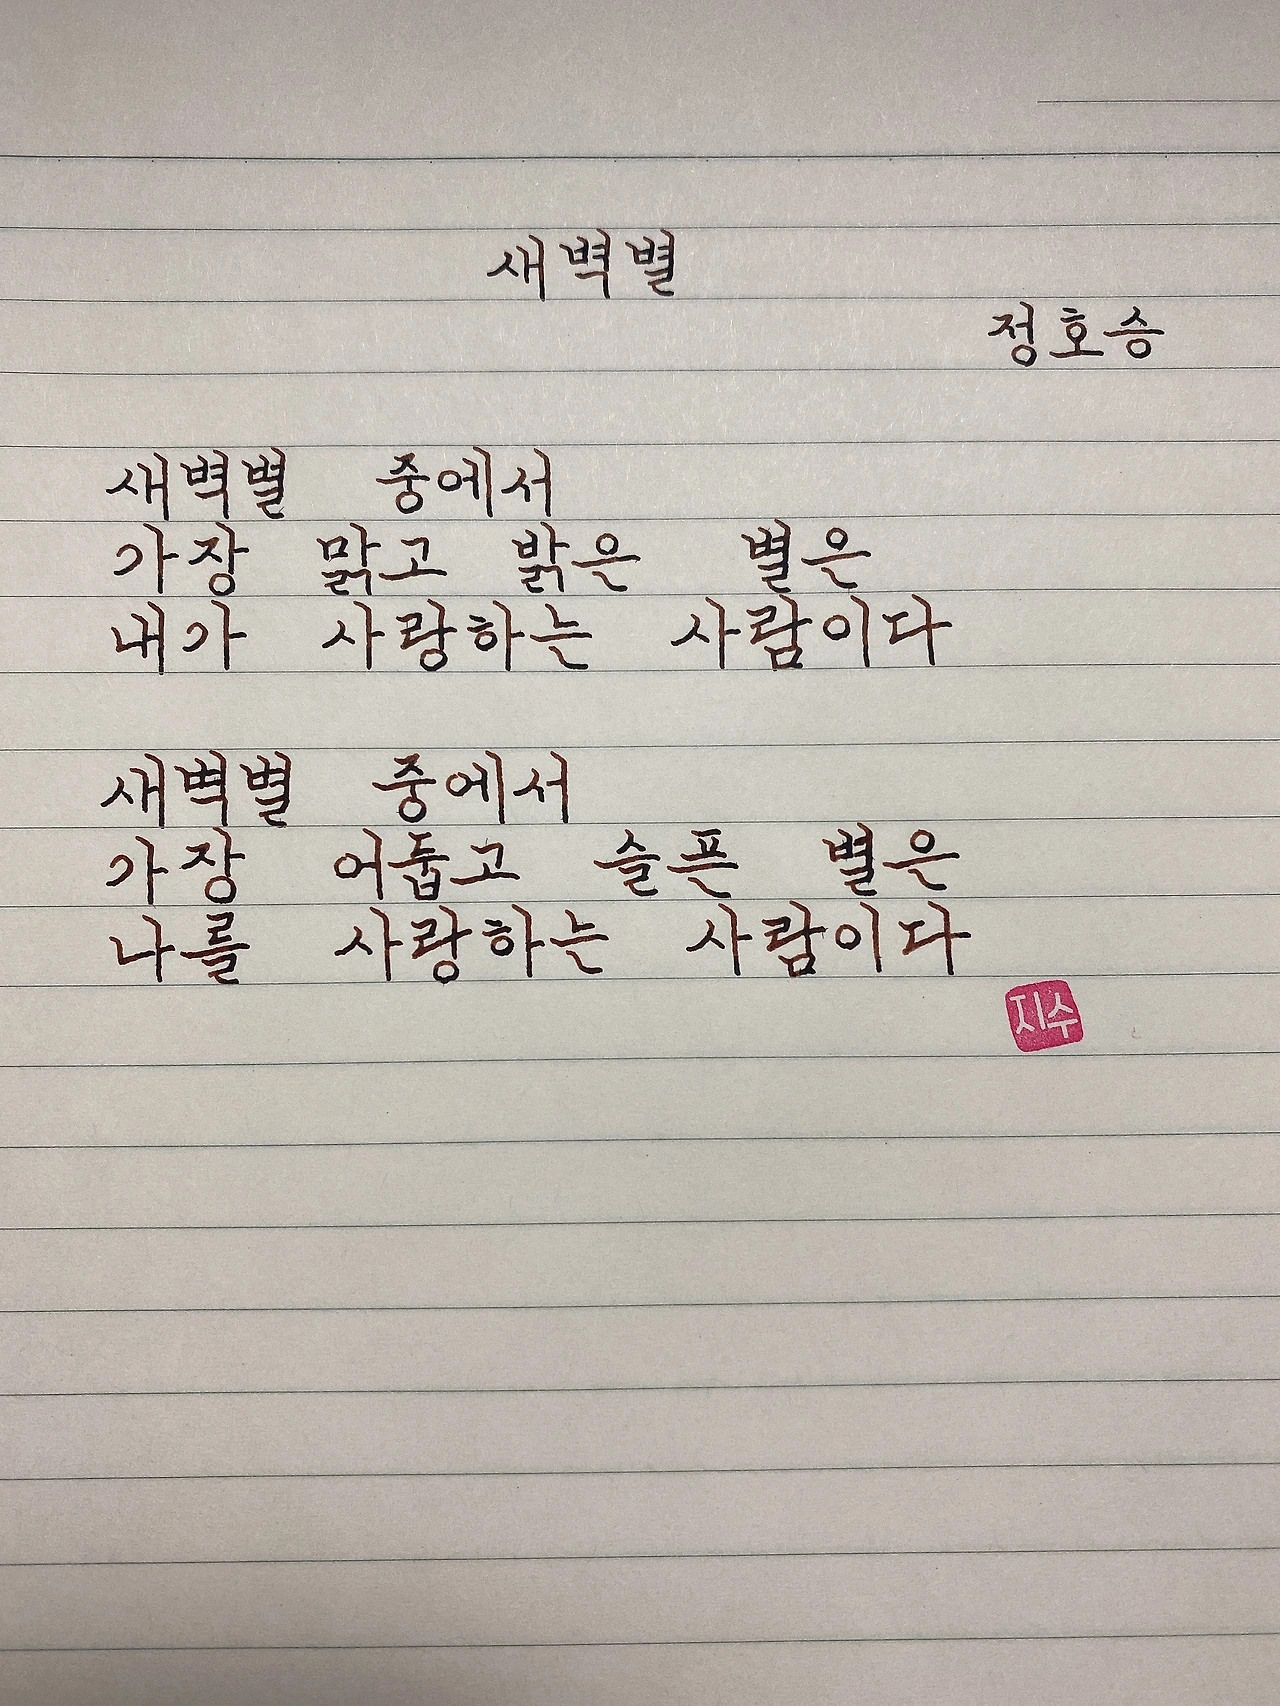 새벽별
정호승
새벽별 중에서
가장 맑고 밝은 별은
내가 사랑하는 사람이다
새벽별 중에서
가장 어둡고 슬픈 별은
나를 사랑하는 사람이다
지수